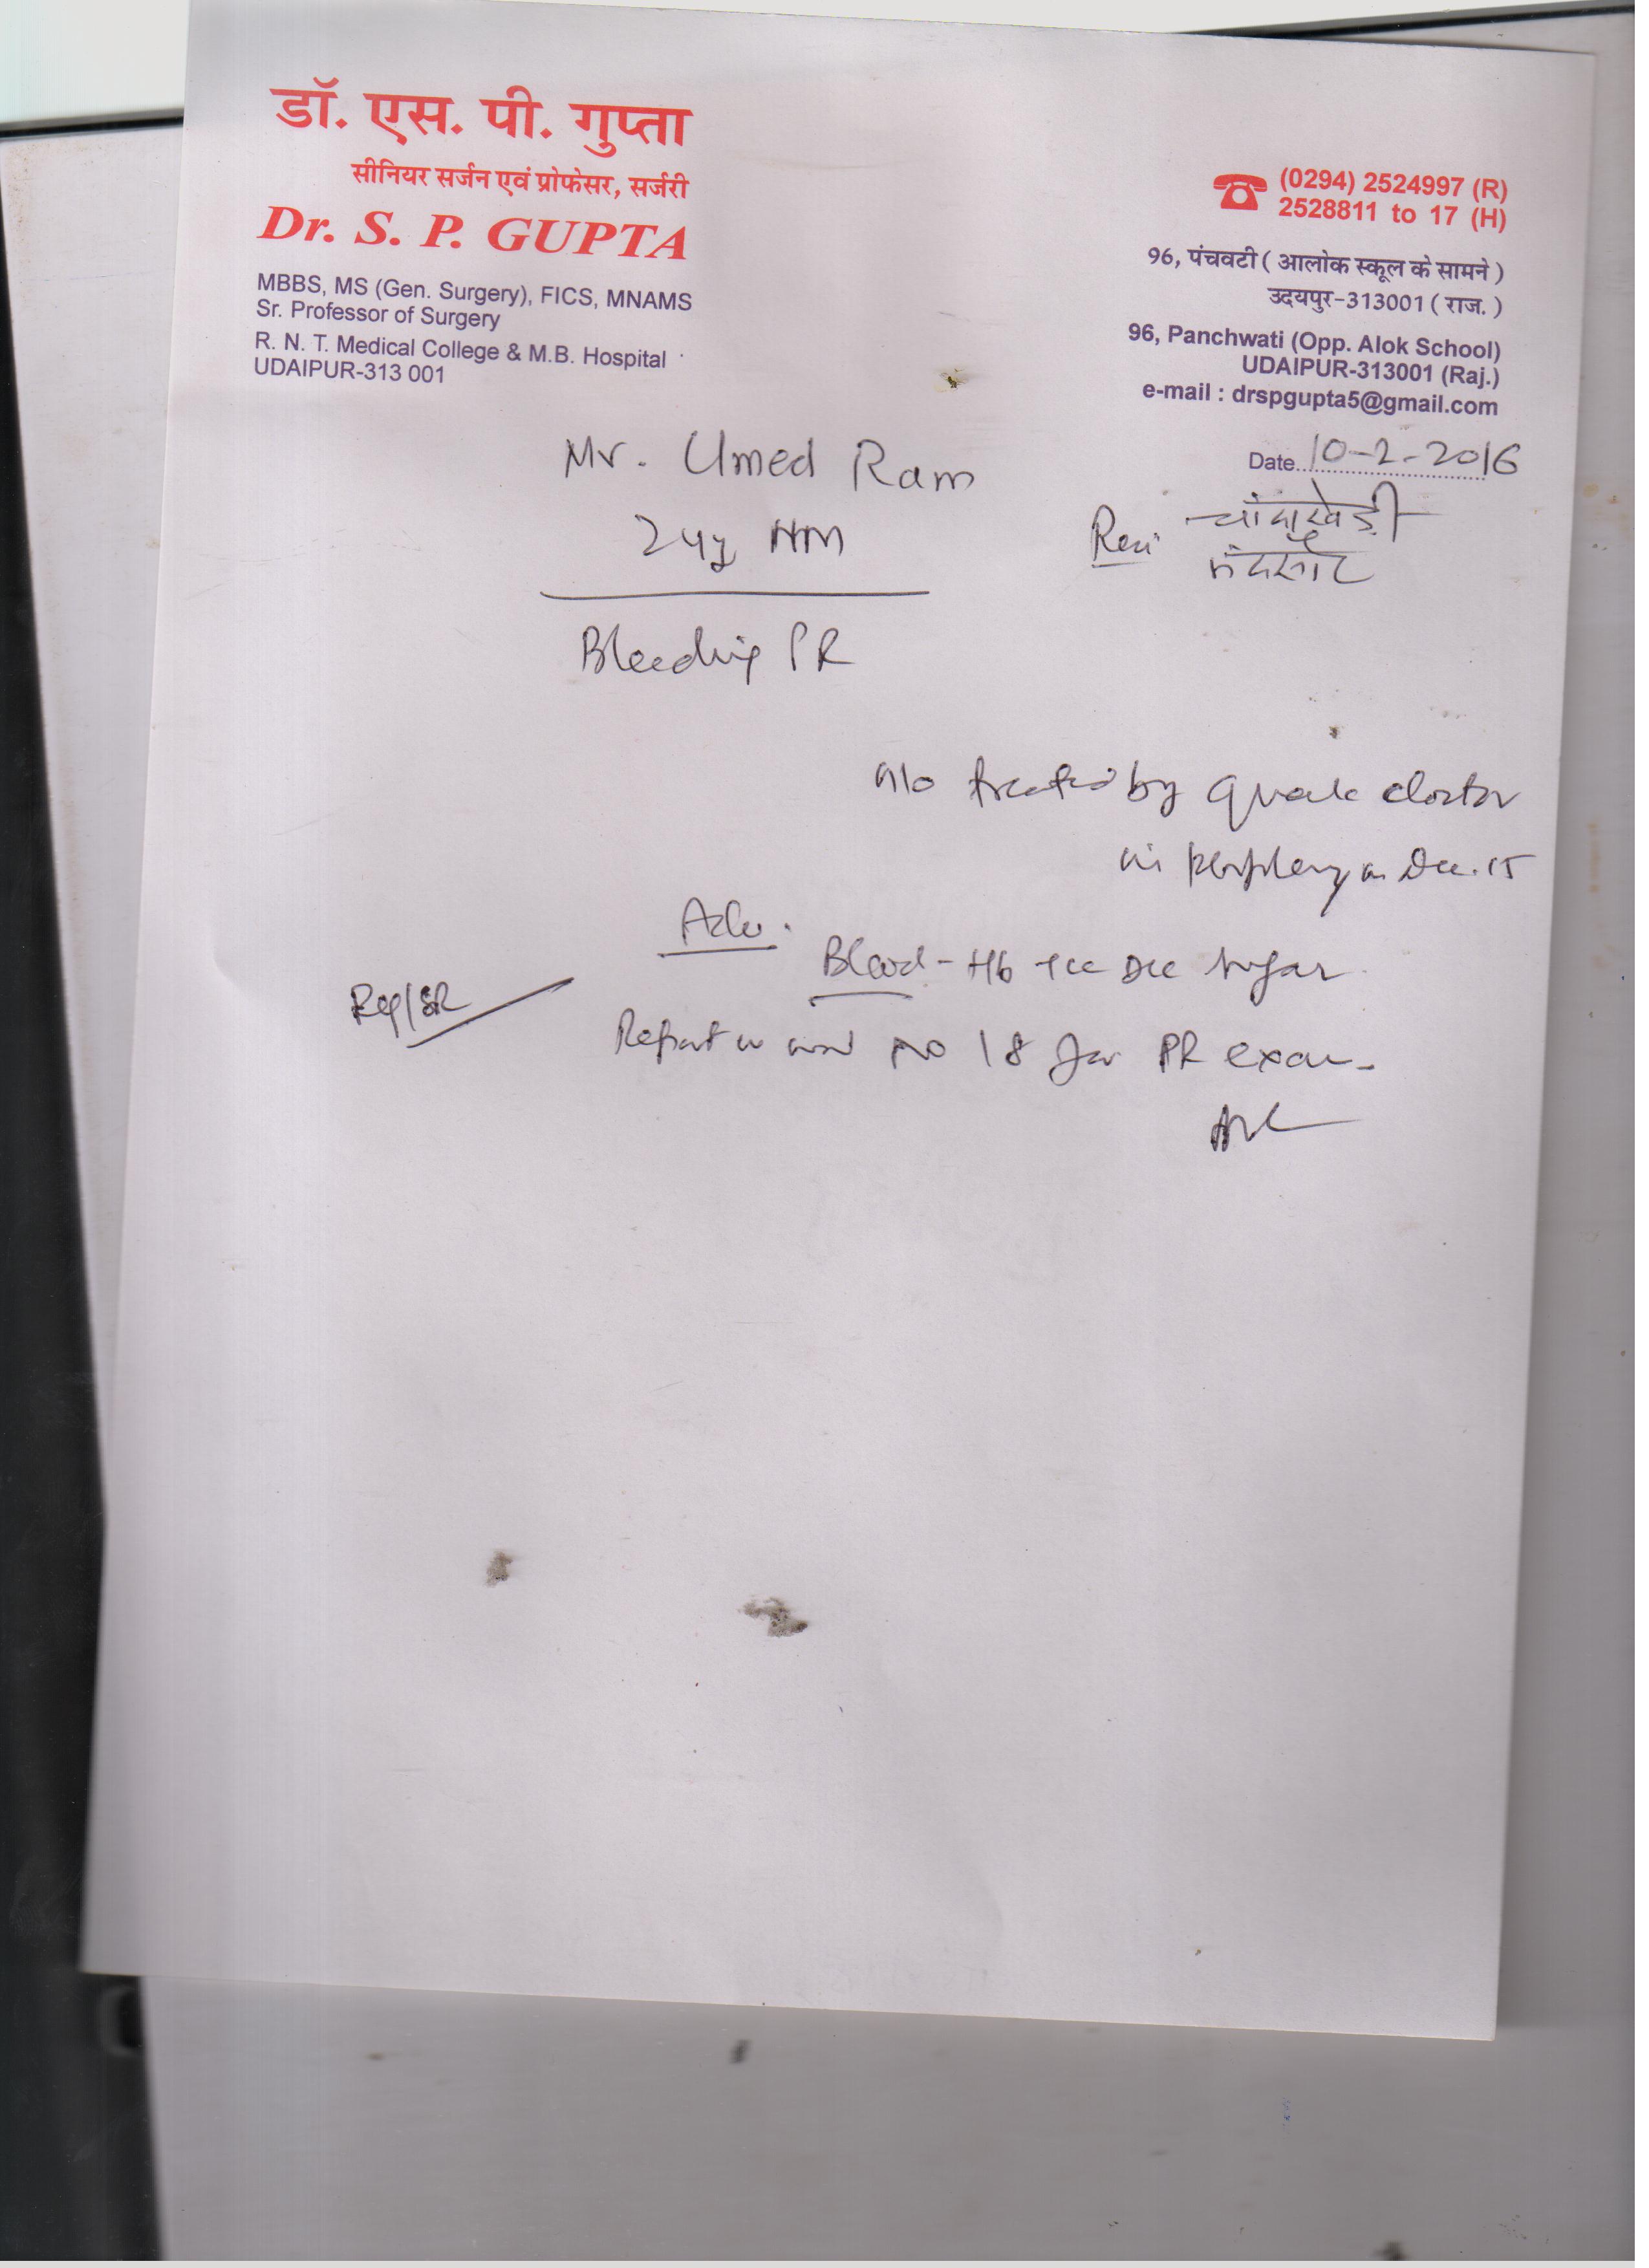 डॉ. एस. पी. गुप्ता
सीनियर सर्जन एवं प्रोफेसर, सर्जरी
Dr. S. P. GUPTA
MBBS, MS (Gen. Surgery), FICS, MNAMS
Sr. Professor of Surgery
R. N. T. Medical College & M.B. Hospital
UDAIPUR-313 001
(0294) 2524997 (R)
2528811 to 17 (H)
96, पंचवटी ( आलोक स्कूल के सामने )
उदयपुर-313001 ( राज. )
96, Panchwati (Opp. Alok School)
UDAIPUR-313001 (Raj.)
e-mail : drspgupta5@gmail.com
Date 10-2-2016
Mr. Umed Ram
24y HM
मंदसौर
Bleeding PR
H/o treated by quack doctor
in periphery in Dec. 15
Adv.
Blood - Hb TLC DLC sugar
Reg/SR
Report in ward no 18 for PR exam